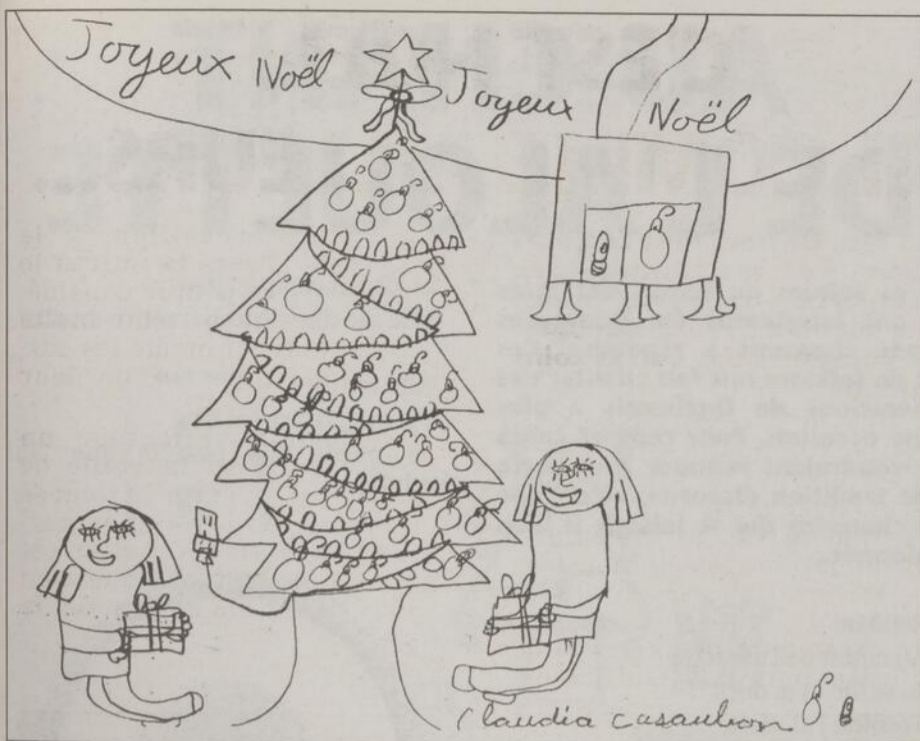 Joyeux Noël Joyeux Noël
Claudia Casaubon